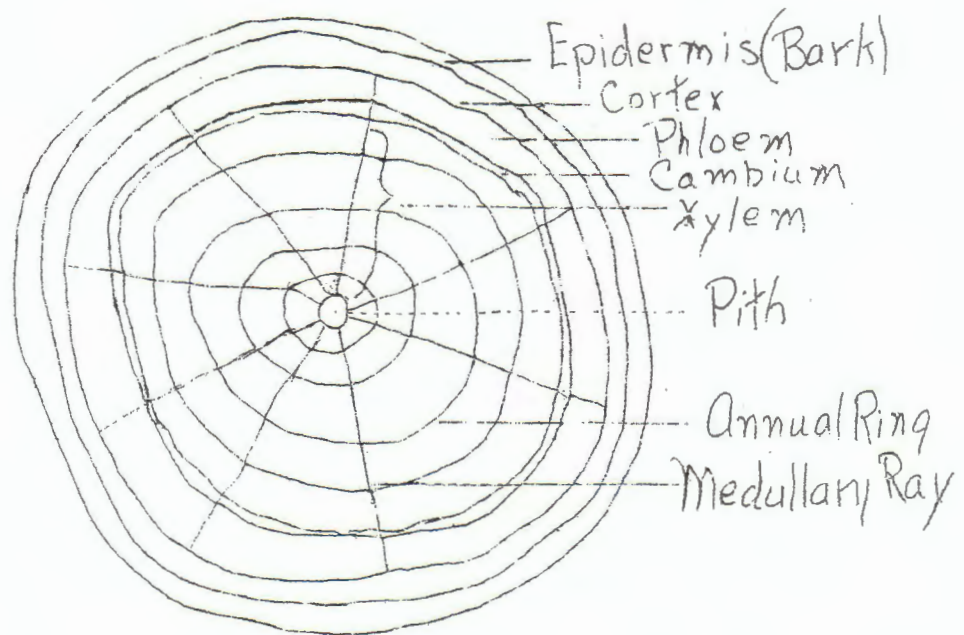 Epidermis(Bark)
Cortex
Phloem
Cambium
Xylem
Pith
Annual Ring
Medullary Ray